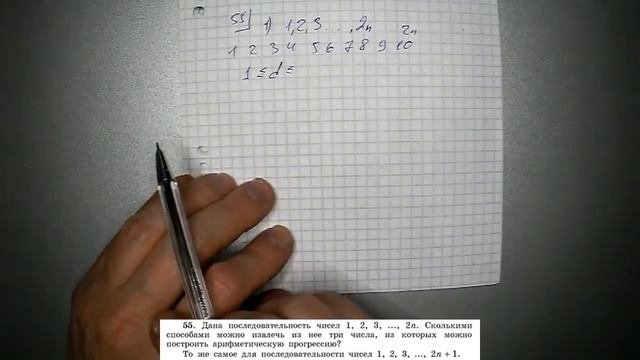 55) 1) 1, 2, 3 ..., 2n 2n
1 2 3 4 5 6 7 8 9 10
1 ≤ d ≤
55. Дана последовательность чисел 1, 2, 3, ..., 2n. Сколькими
способами можно извлечь из нее три числа, из которых можно
построить арифметическую прогрессию?
То же самое для последовательности чисел 1, 2, 3, ..., 2n + 1.